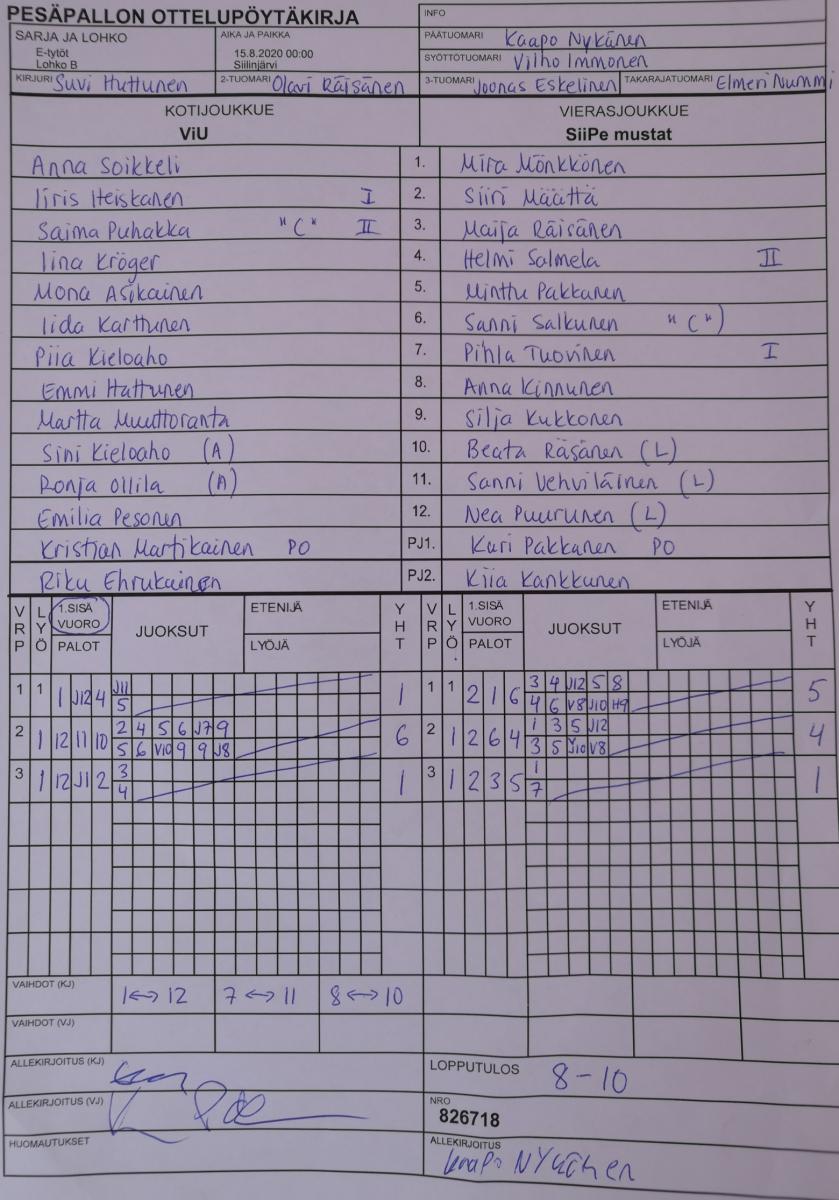 PESÄPALLON OTTELUPÖYTÄKIRJA
INFO
SARJA JA LOHKO
E-tytöt
Lohko B
AIKA JA PAIKKA
15.8.2020 00:00
Siilinjärvi
PÄÄTUOMARI Kaapo Nykänen
SYÖTTÖTUOMARI Vilho Immonen
KIRJURI Suvi Huttunen 2-TUOMARI Olavi Räisänen 3-TUOMARI Joonas Eskelinen TAKARAJATUOMARI Elmeri Nummi
KOTIJOUKKUE VIERASJOUKKUE
ViU SiiPe mustat
Anna Soikkeli 1. Mira Mönkkönen
Iiris Heiskanen I 2. Siiri Määttä
Saima Puhakka "C" II 3. Maija Räisänen
Iina Kröger 4. Helmi Salmela II
Mona Asikainen 5. Minttu Pakkanen
Iida Karttunen 6. Sanni Salkunen "C")
Piia Kieloaho 7. Pihla Tuovinen I
Emmi Hattunen 8. Anna Kinnunen
Martta Muuttoranta 9. Silja Kukkonen
Sini Kieloaho (A) 10. Beata Räsänen (L)
Ronja Ollila (A) 11. Sanni Vehviläinen (L)
Emilia Pesonen 12. Nea Puurunen (L)
Kristian Martikainen PO PJ1. Kari Pakkanen PO
Riku Ehrukainen PJ2. Kiia Kankkunen
VRP LYÖ 1.SISÄ VUORO PALOT JUOKSUT ETENIJÄ LYÖJÄ YHT VRP LYÖ 1.SISÄ VUORO PALOT JUOKSUT ETENIJÄ LYÖJÄ YHT
1 1 1 J12 4 J11 1 1 1 2 1 6 3 4 J12 5 8 5
5 4 6 V8 J10 H9
2 1 12 11 10 2 4 5 6 J7 9 6 2 1 2 6 4 1 3 5 J12 4
5 6 V10 9 9 J8 3 5 J10 V8
3 1 12 J1 2 3 1 3 1 2 3 5 1 1
4 7
VAIHDOT (KJ) 1↔12 7↔11 8↔10
VAIHDOT (VJ)
ALLEKIRJOITUS (KJ)
LOPPUTULOS 8-10
ALLEKIRJOITUS (VJ)
NRO
826718
HUOMAUTUKSET
ALLEKIRJOITUS
Kaapo Nykänen